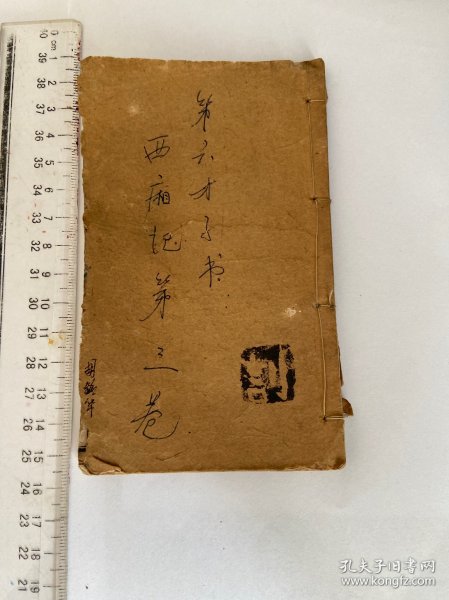 第六才子书：
西厢记第三卷
孔夫子旧书网
www.kongfz.com
0 cm 1 2 3 4 5 6 7 8 9 10 11 12 13 14 15 16 17 18 19 20
40 39 38 37 36 35 34 33 32 31 30 29 28 27 26 25 24 23 22 21